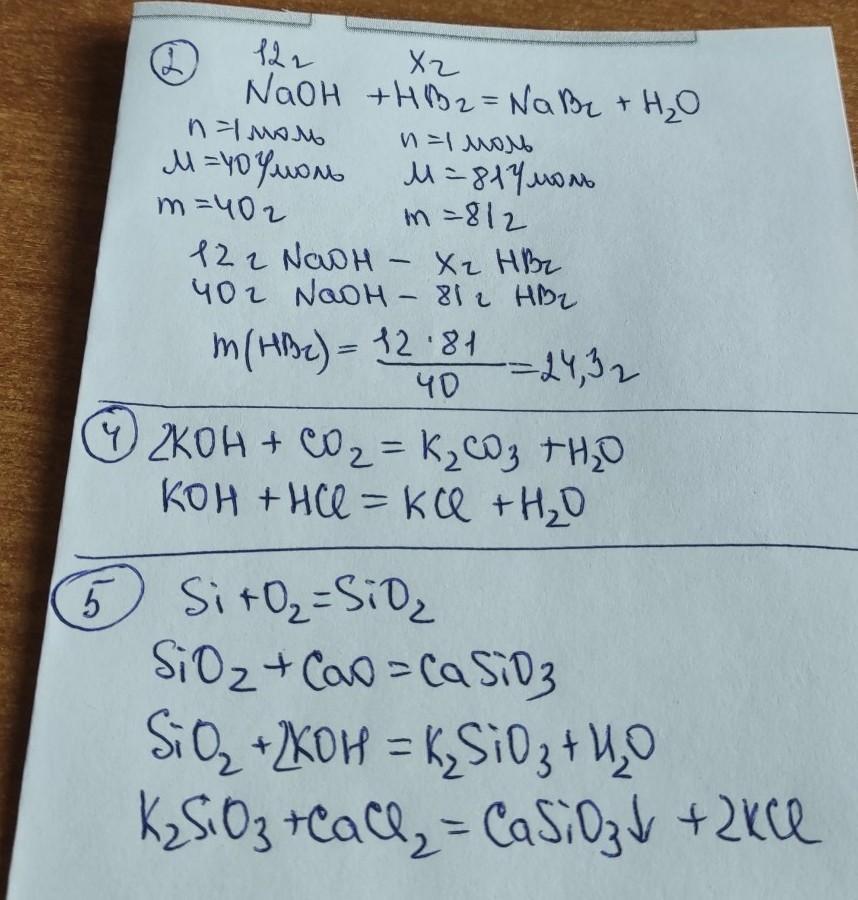 ② 12г xг
NaOH + HBr = NaBr + H₂O
n = 1 моль n = 1 моль
M = 40 г/моль M = 81 г/моль
m = 40 г m = 81 г
12 г NaOH – xг HBr
40 г NaOH – 81 г HBr
m(HBr) = 12 · 81 / 40 = 24,3 г
④ 2KOH + CO₂ = K₂CO₃ + H₂O
KOH + HCl = KCl + H₂O
⑤ Si + O₂ = SiO₂
SiO₂ + CaO = CaSiO₃
SiO₂ + 2KOH = K₂SiO₃ + H₂O
K₂SiO₃ + CaCl₂ = CaSiO₃↓ + 2KCl